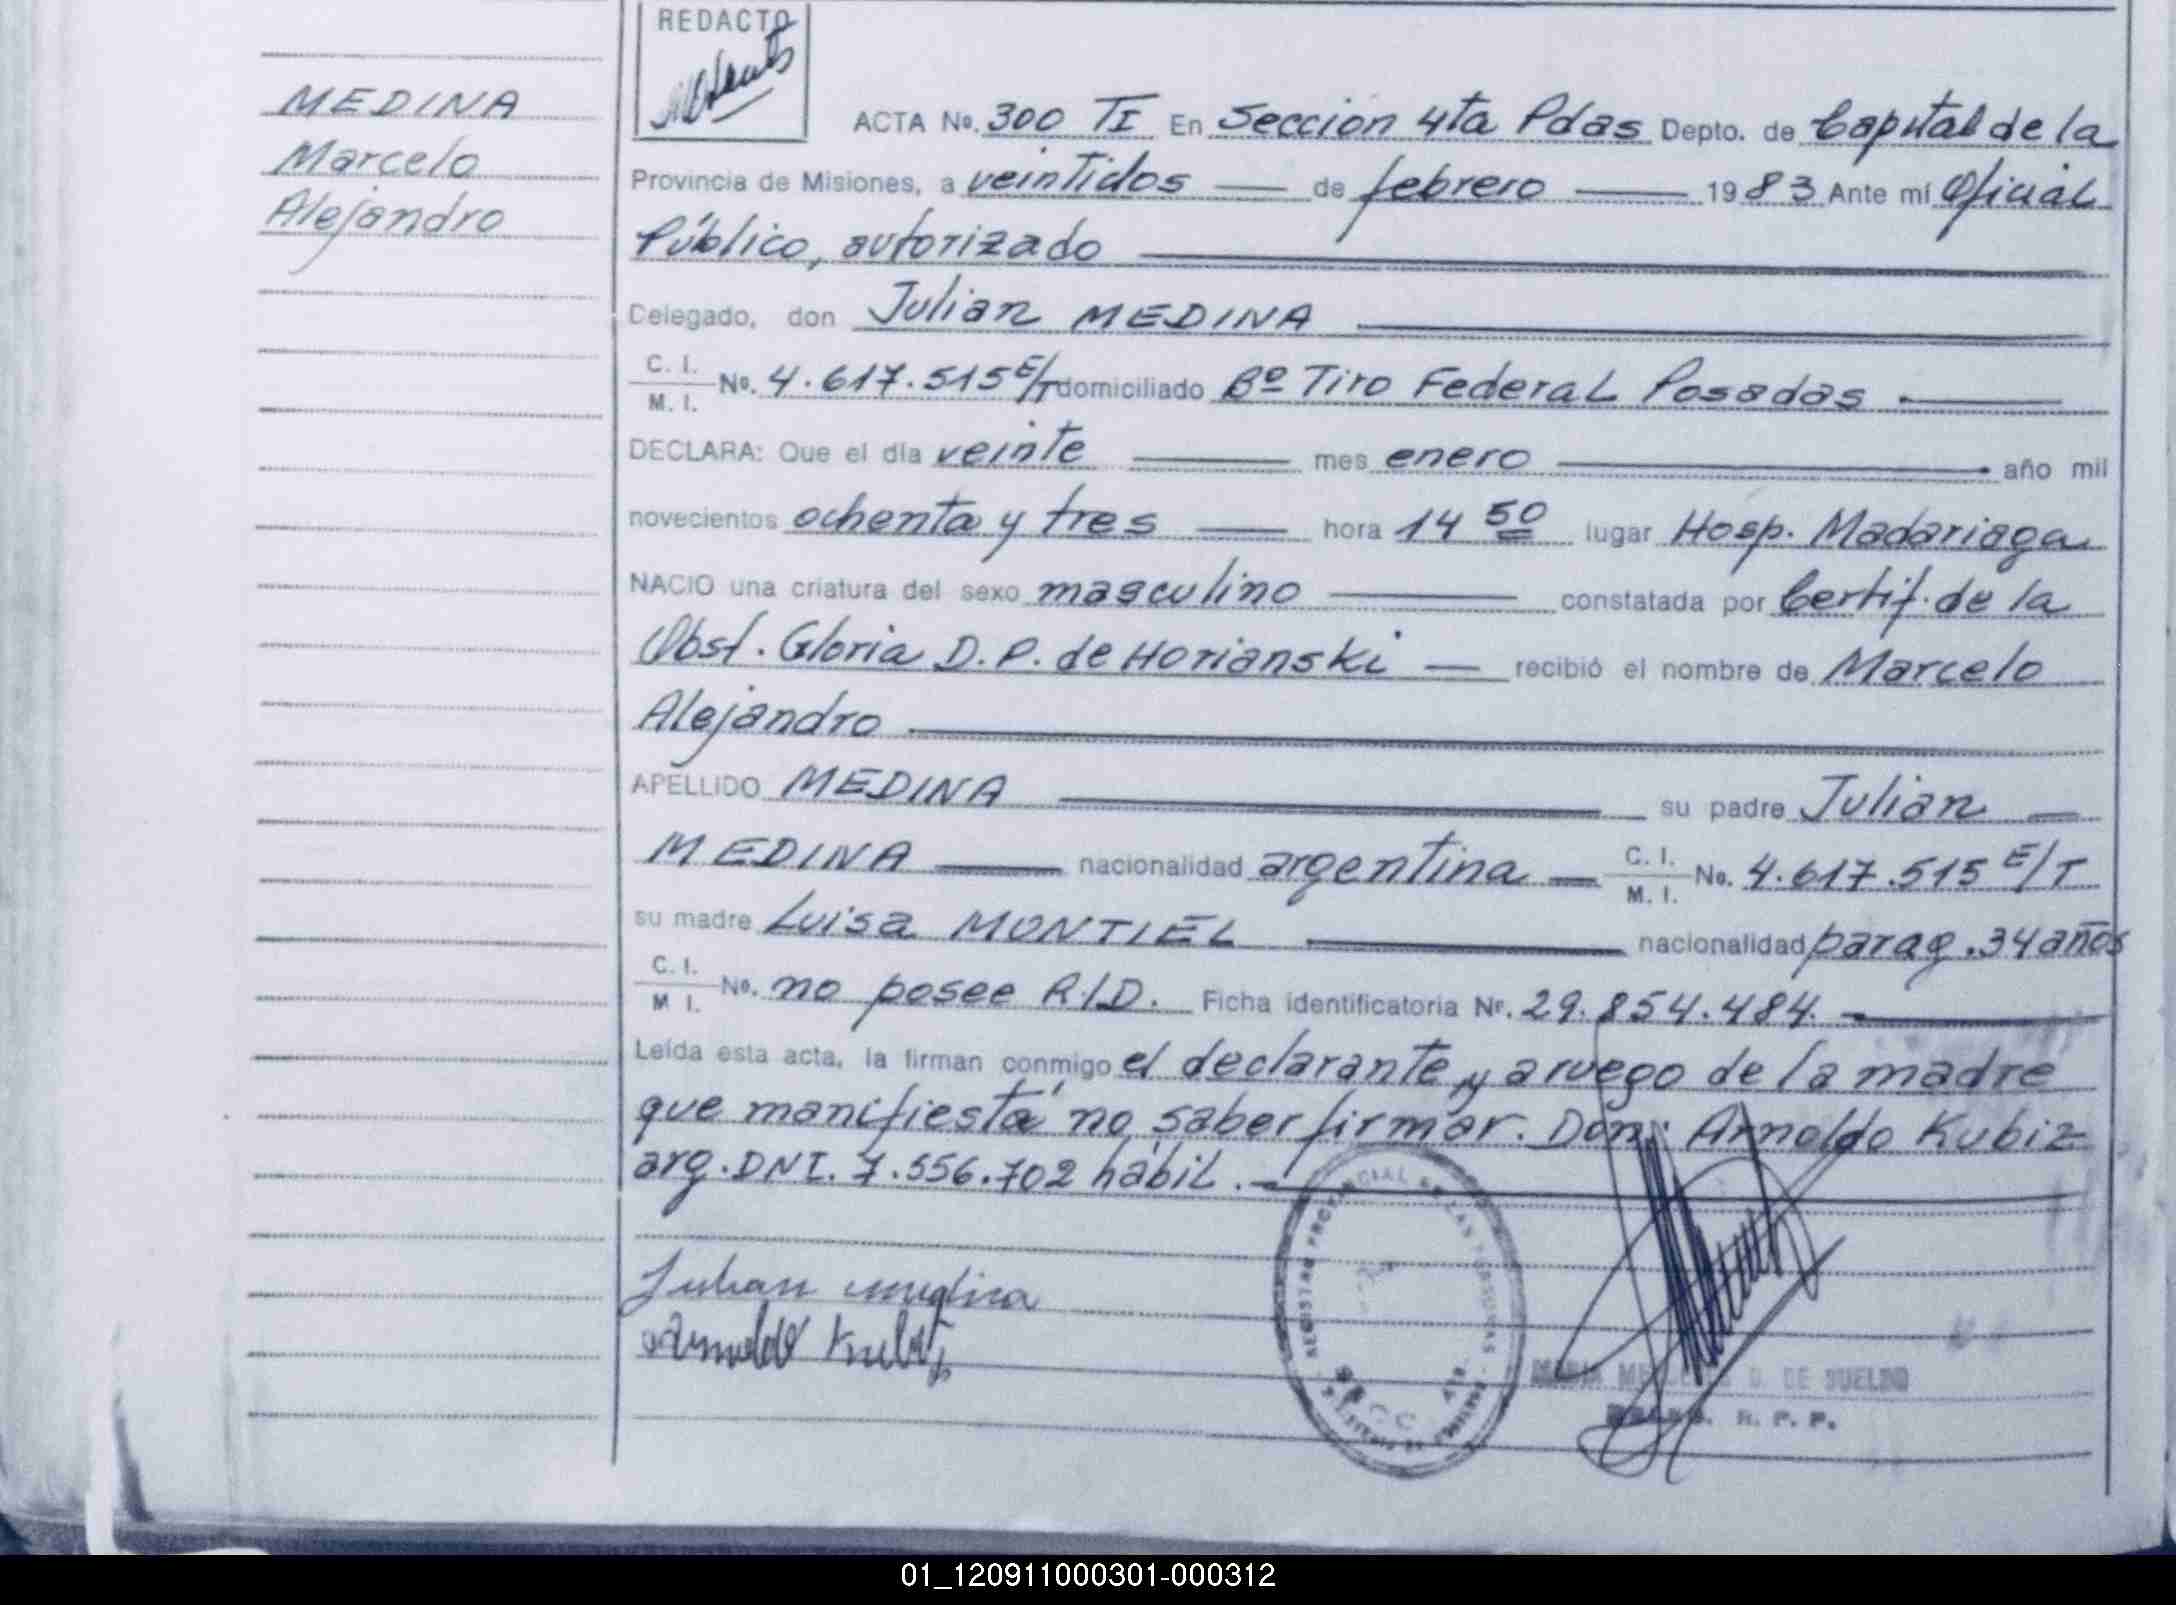 REDACTO
MEDINA
Marcelo
Alejandro
ACTA No. 300 TI En Sección 4ta Pdas Depto. de Capital de la
Provincia de Misiones, a veintidos de febrero 1983 Ante mí Oficial
Público, autorizado
Delegado, don Julian MEDINA
C. I. M. I. No. 4.617.515 E/T domiciliado Bº Tiro Federal Posadas
DECLARA: Que el día veinte mes enero año mil
novecientos ochenta y tres hora 14 50 lugar Hosp. Madariaga
NACIO una criatura del sexo masculino constatada por Certif. de la
Obst. Gloria D. P. de Horianski recibió el nombre de Marcelo
Alejandro
APELLIDO MEDINA su padre Julian
MEDINA nacionalidad argentina C. I. M. I. No. 4.617.515 E/T
su madre Luisa MONTIEL nacionalidad parag. 34 años
C. I. M I. No. no posee R/D. Ficha identificatoria Nr. 29.854.484.
Leída esta acta, la firman conmigo el declarante y a ruego de la madre
que manifiesta no saber firmar. Don: Arnoldo Kubiz
arg. DNI. 7.556.702 hábil.
Julian medina
Arnoldo
REGISTRO PROVINCIAL DE LAS PERSONAS
DE SUELDO
R. P. P.
01_120911000301-000312